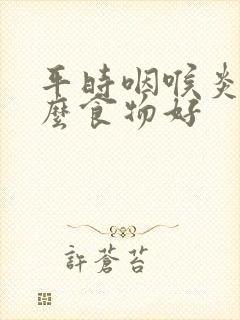 平時咽喉炎
麼食物好
許蒼苔